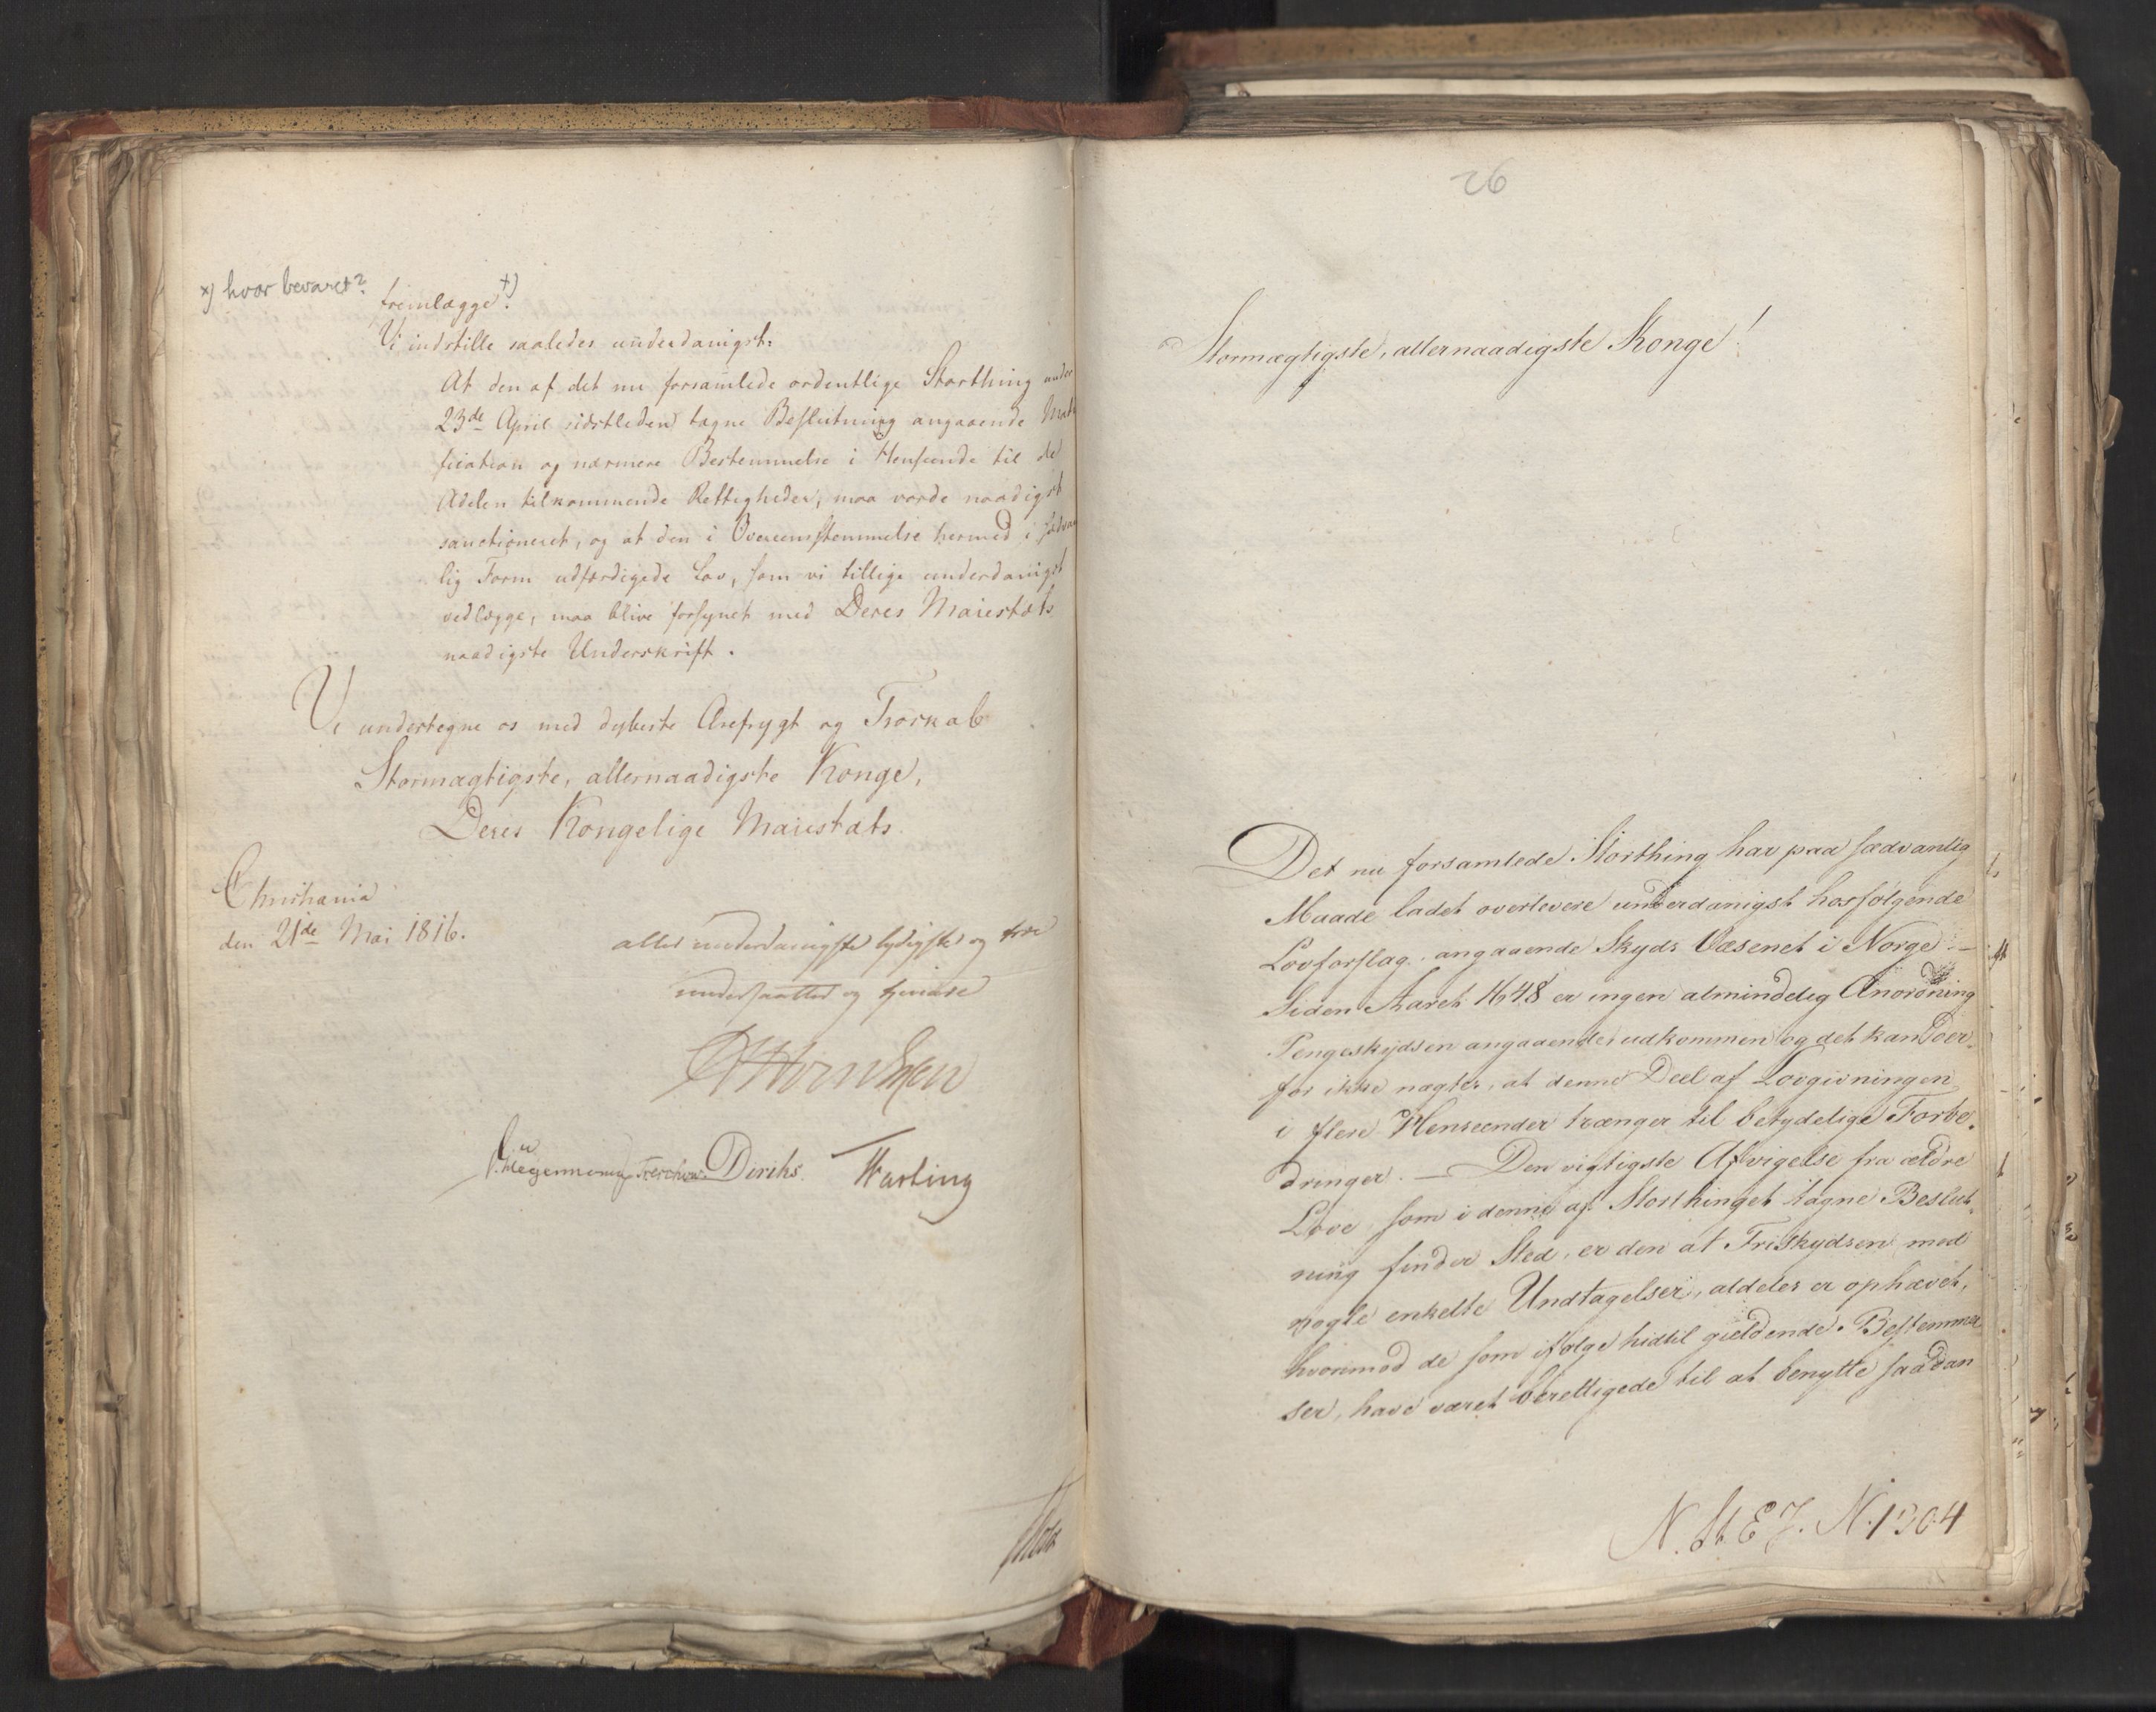 x) hvor bevaret?
fremlægge. x)
Vi indstille saaledes underdanigst:
At den af det nu forsamlede ordentlige Storthing under
23de April sidstleden tagne Beslutning angaaende
fication og nærmere Bestemmelse i Henseende til de
Adelen tilkommende Rettigheder, maa vorde naadigst
sanctioneret, og at den i Overeensstemmelse hermed i sædvan
lig Form udfærdigede Lov, som vi tillige underdanigst
vedlægge, maa blive forsynet med Deres Maiestæts
naadigste Underskrift.
Vi undertegne os med dybeste Ærefrygt og Troskab
Stormægtigste, allernaadigste Konge,
Deres Kongelige Maiestæts.
Christiania
den 21de Mai 1816.
aller underdanigste lydigste og troe
undersaatter og tjenere
Hegermann Treschow. Diriks. Harbing
26
Stormægtigste, allernaadigste Konge!
Det nu forsamlede Storthing har paa sædvanlig
Maade ladet overlevere underdanigst hosfølgende
Lovforslag angaaende Skyds Væsenet i Norge. —
Siden Aaret 1648 er ingen almindelig Anordning
Pengeskydsen angaaende udkommen og det kan der-
for ikke nægtes, at denne Deel af Lovgivningen
i flere Henseender trænger til betydelige Forbe-
dringer. — Den vigtigste Afvigelse fra ældre
Love, som i denne af Storthinget tagne Beslut-
ning finder Sted, er den at Friskydsen med
nogle enkelte Undtagelser, aldeles er ophævet,
hvorimod de som ifølge hidtil gieldende Bestemmel
ser, have været berettigede til at benytte saadan
N. St. E. J. N. 1304